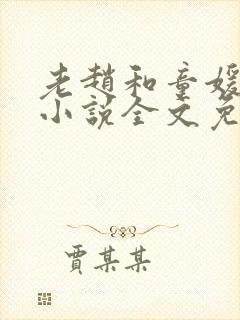 老趙和童媛
小說全文免
賈某某